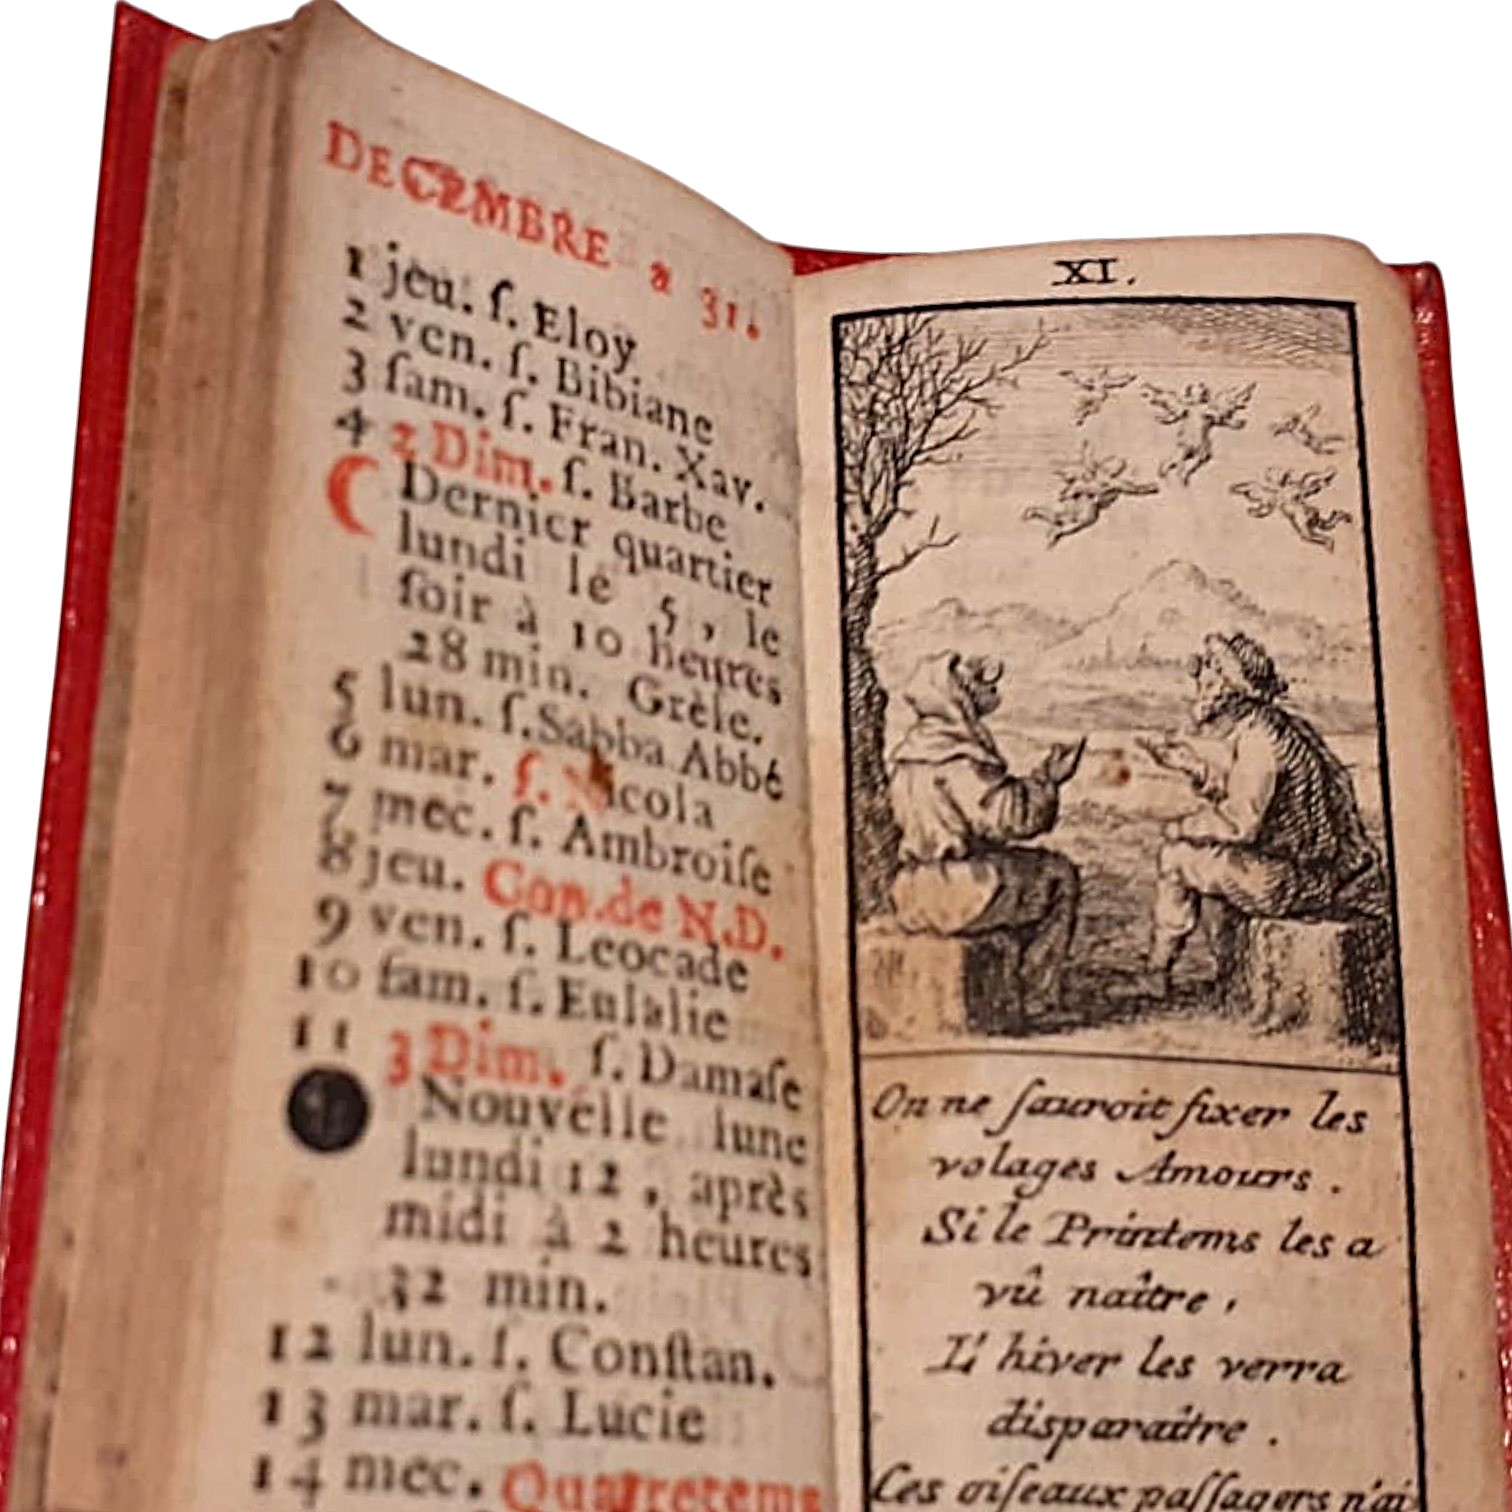 DECEMBRE a 31.
1 jeu. ſ. Eloy
2 ven. ſ. Bibiane
3 ſam. ſ. Fran. Xav.
4 2 Dim. ſ. Barbe
Dernier quartier
lundi le 5, le
ſoir à 10 heures
28 min. Grèle.
5 lun. ſ. Sabba Abbé
6 mar. ſ. Nicola
7 mec. ſ. Ambroiſe
8 jeu. Con. de N. D.
9 ven. ſ. Leocade
10 ſam. ſ. Eulalie
11 3 Dim. ſ. Damaſe
Nouvelle lune
lundi 12, après
midi à 2 heures
32 min.
12 lun. ſ. Conſtan.
13 mar. ſ. Lucie
14 mec. Quatretems
XI.
On ne ſauroit fixer les
volages Amours.
Si le Printems les a
vû naître,
L'hiver les verra
disparaître.
Ces oiſeaux paſſagers n'ai